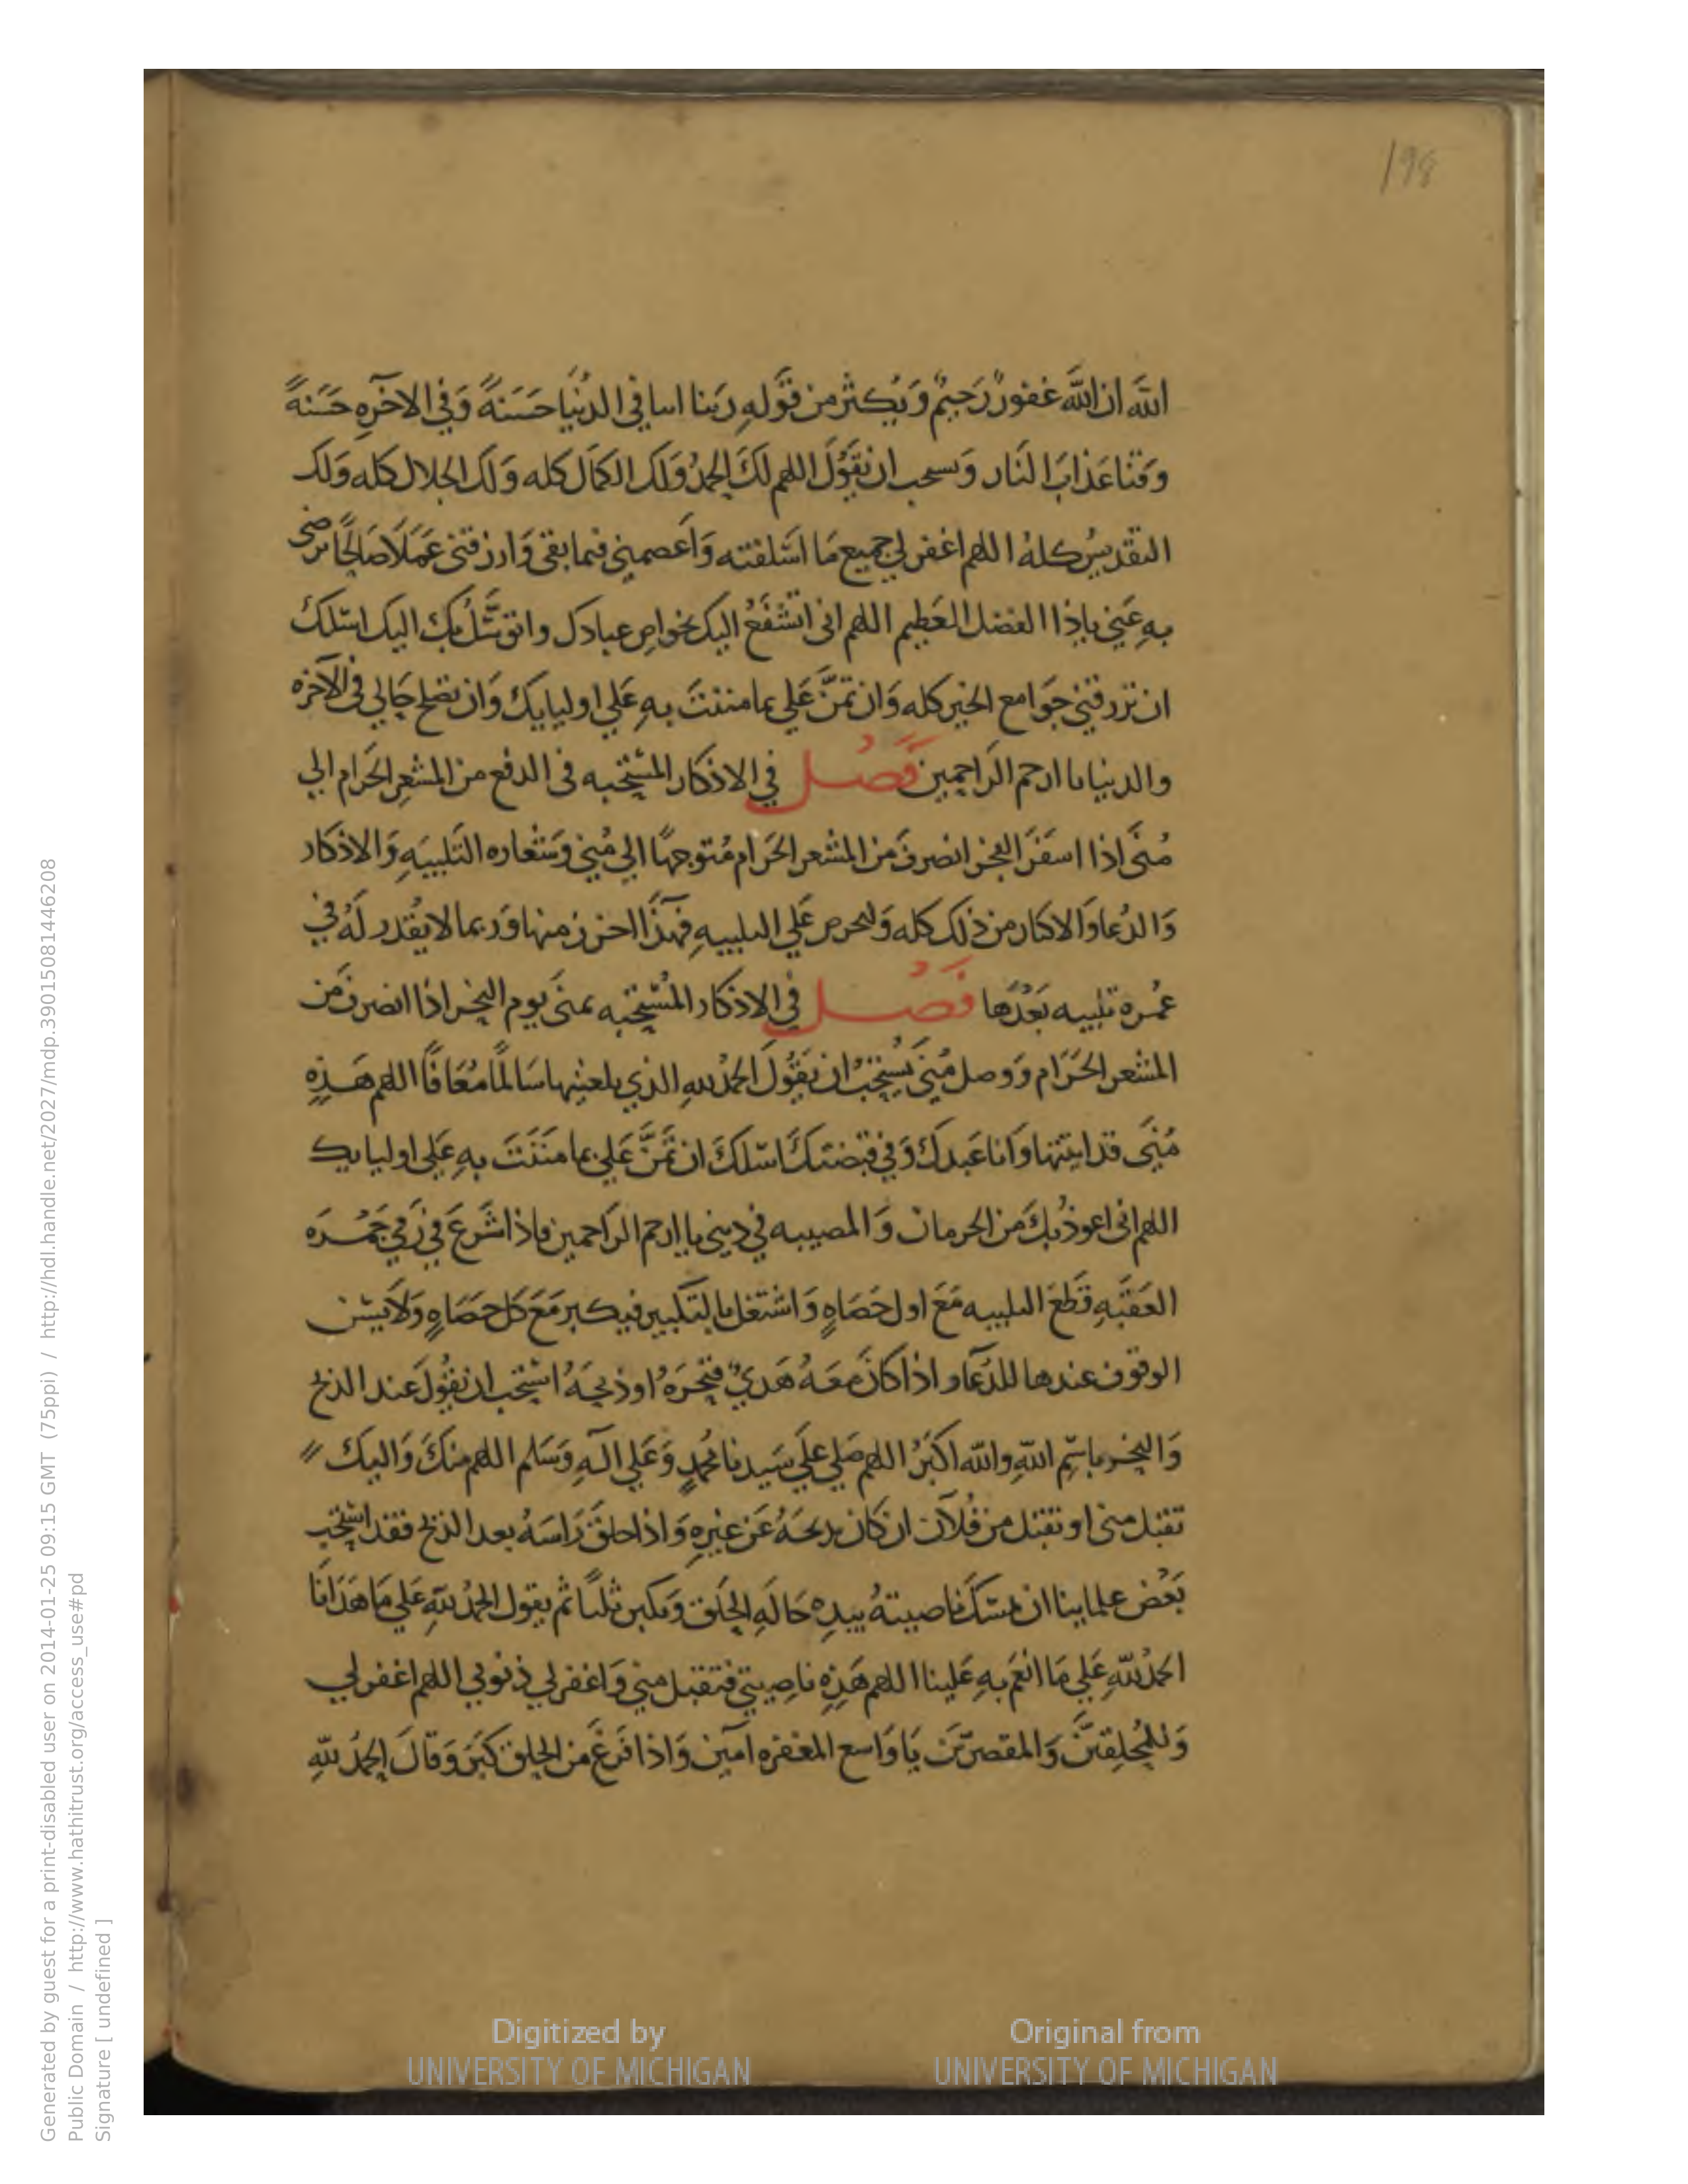 198
الله ان الله غفور رحيم ويكثر من قوله ربنا اتنا في الدنيا حسنة وفي الآخره حسنة
وقنا عذاب النار ويستحب ان يقول اللهم لك الحمد ولك الكمال كله ولك الجلال كله ولك
التقديس كله اللهم اغفر لي جميع ما اسلفته واعصمني فيما بقى وارزقني عملا صالحا ترضى
به عني ياذا الفضل العظيم اللهم انى اتشفع اليك بخواص عبادك واتوسل بك اليك اسلك
ان ترزقني جوامع الخير كله وان تمن علي بما مننت به علي اوليايك وان تصلح حالي في الآخره
والدنيا يا ارحم الراحمين فصل في الاذكار المستحبه في الدفع من المشعر الحرام الي
منى اذا اسفر الفجر انصرف من المشعر الحرام متوجها الي منى وشعاره التلبيه والاذكار
والدعا والاكثار من ذلك كله وليحرص علي التلبيه فهذا اخر زمنها وربما لا يقدر له في
عمره تلبيه بعدها فصل في الاذكار المستحبه بمنى يوم النحر اذا انصرف من
المشعر الحرام ووصل منى يستحب ان يقول الحمد لله الذي بلغنيها سالما معافا اللهم هذه
منى قد اتيتها وانا عبدك وفي قبضتك اسلك ان تمن علي بما مننت به علي اوليايك
اللهم انى اعوذ بك من الحرمان والمصيبه في ديني يا ارحم الراحمين فاذا شرع في رمي جمره
العقبه قطع التلبيه مع اول حصاه واشتغل بالتكبير فيكبر مع كل حصاه ولا يسن
الوقوف عندها للدعا واذا كان معه هدي فنحره او ذبحه استحب ان يقول عند الذبح
والنحر باسم الله والله اكبر اللهم صلي علي سيدنا محمد وعلي اله وسلم اللهم منك واليك
تقبل منى او تقبل من فلان ان كان يذبحه عن غيره واذا حلق راسه بعد الذبح فقد استحب
بعض علماينا ان يمسك ناصيته بيده حاله الحلق ويكبر ثلثا ثم يقول الحمد لله علي ما هدانا
الحمد لله علي ما انعم به علينا اللهم هذه ناصيتي فتقبل مني واغفر لي ذنوبي اللهم اغفر لي
وللمحلقين والمقصرين يا واسع المغفره آمين واذا فرغ من الحلق كبر وقال الحمد لله
Digitized by UNIVERSITY OF MICHIGAN
Original from UNIVERSITY OF MICHIGAN
Generated by guest for a print-disabled user on 2014-01-25 09:15 GMT (75ppi) / http://hdl.handle.net/2027/mdp.39015081446208
Public Domain / http://www.hathitrust.org/access_use#pd
Signature [ undefined ]